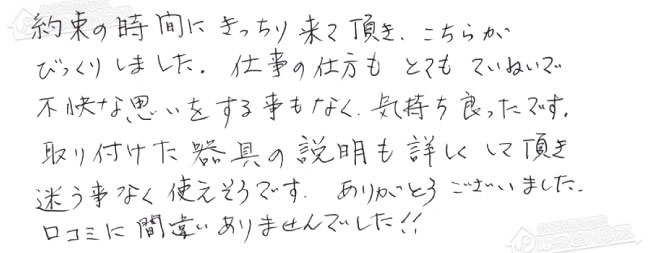 約束の時間にきっちり来て頂き、こちらが
びっくりしました。仕事の仕方もとてもていねいで
不快な思いをする事もなく、気持ち良ったです。
取り付けた器具の説明も詳しくして頂き
迷う事なく使えそうです。ありがとうございました。
口コミに間違いありませんでした!!